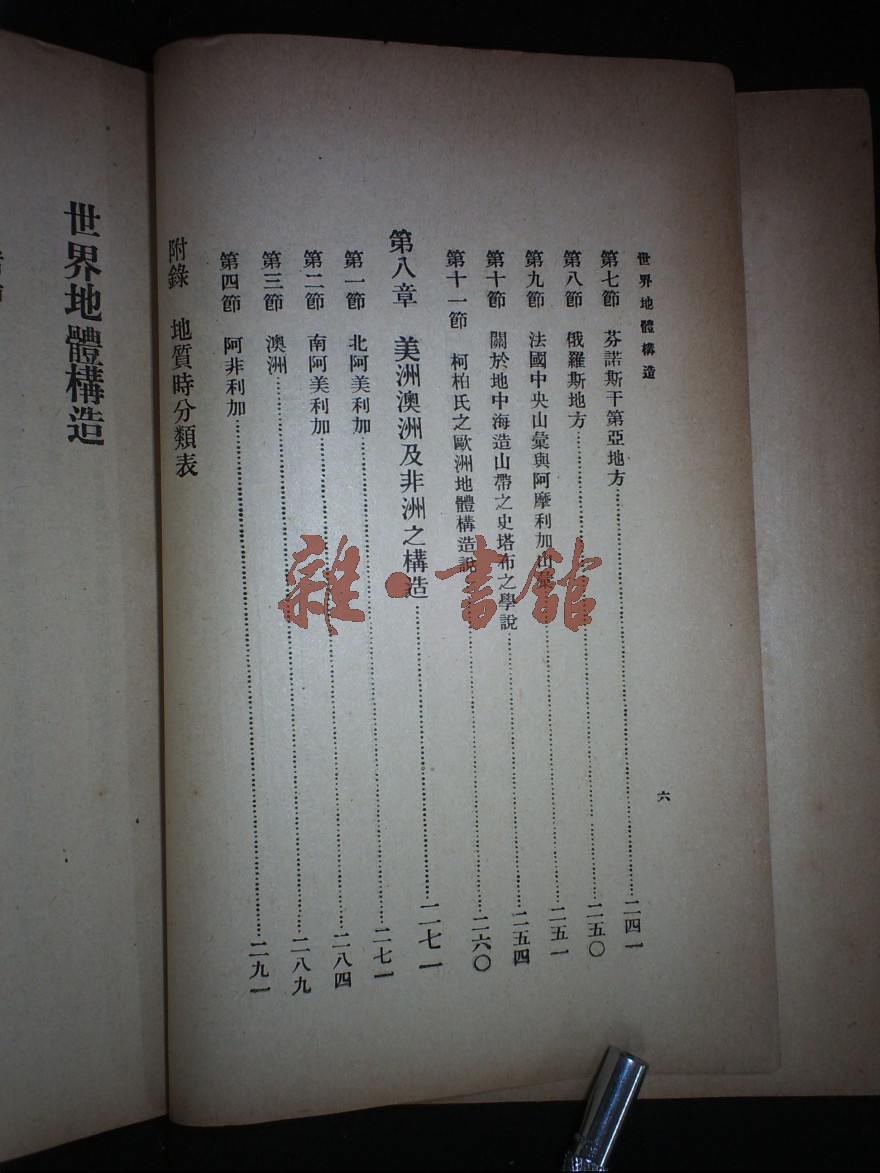 世界地體構造
六
第七節 芬諾斯干第亞地方……二四一
第八節 俄羅斯地方……二五〇
第九節 法國中央山彙與阿摩利加山……二五一
第十節 關於地中海造山帶之史塔布之學說……二五四
第十一節 柯柏氏之歐洲地體構造說……二六〇
第八章 美洲澳洲及非洲之構造……二七一
第一節 北阿美利加……二七一
第二節 南阿美利加……二八四
第三節 澳洲……二八九
第四節 阿非利加……二九一
附錄 地質時分類表
世界地體構造
雜·書館